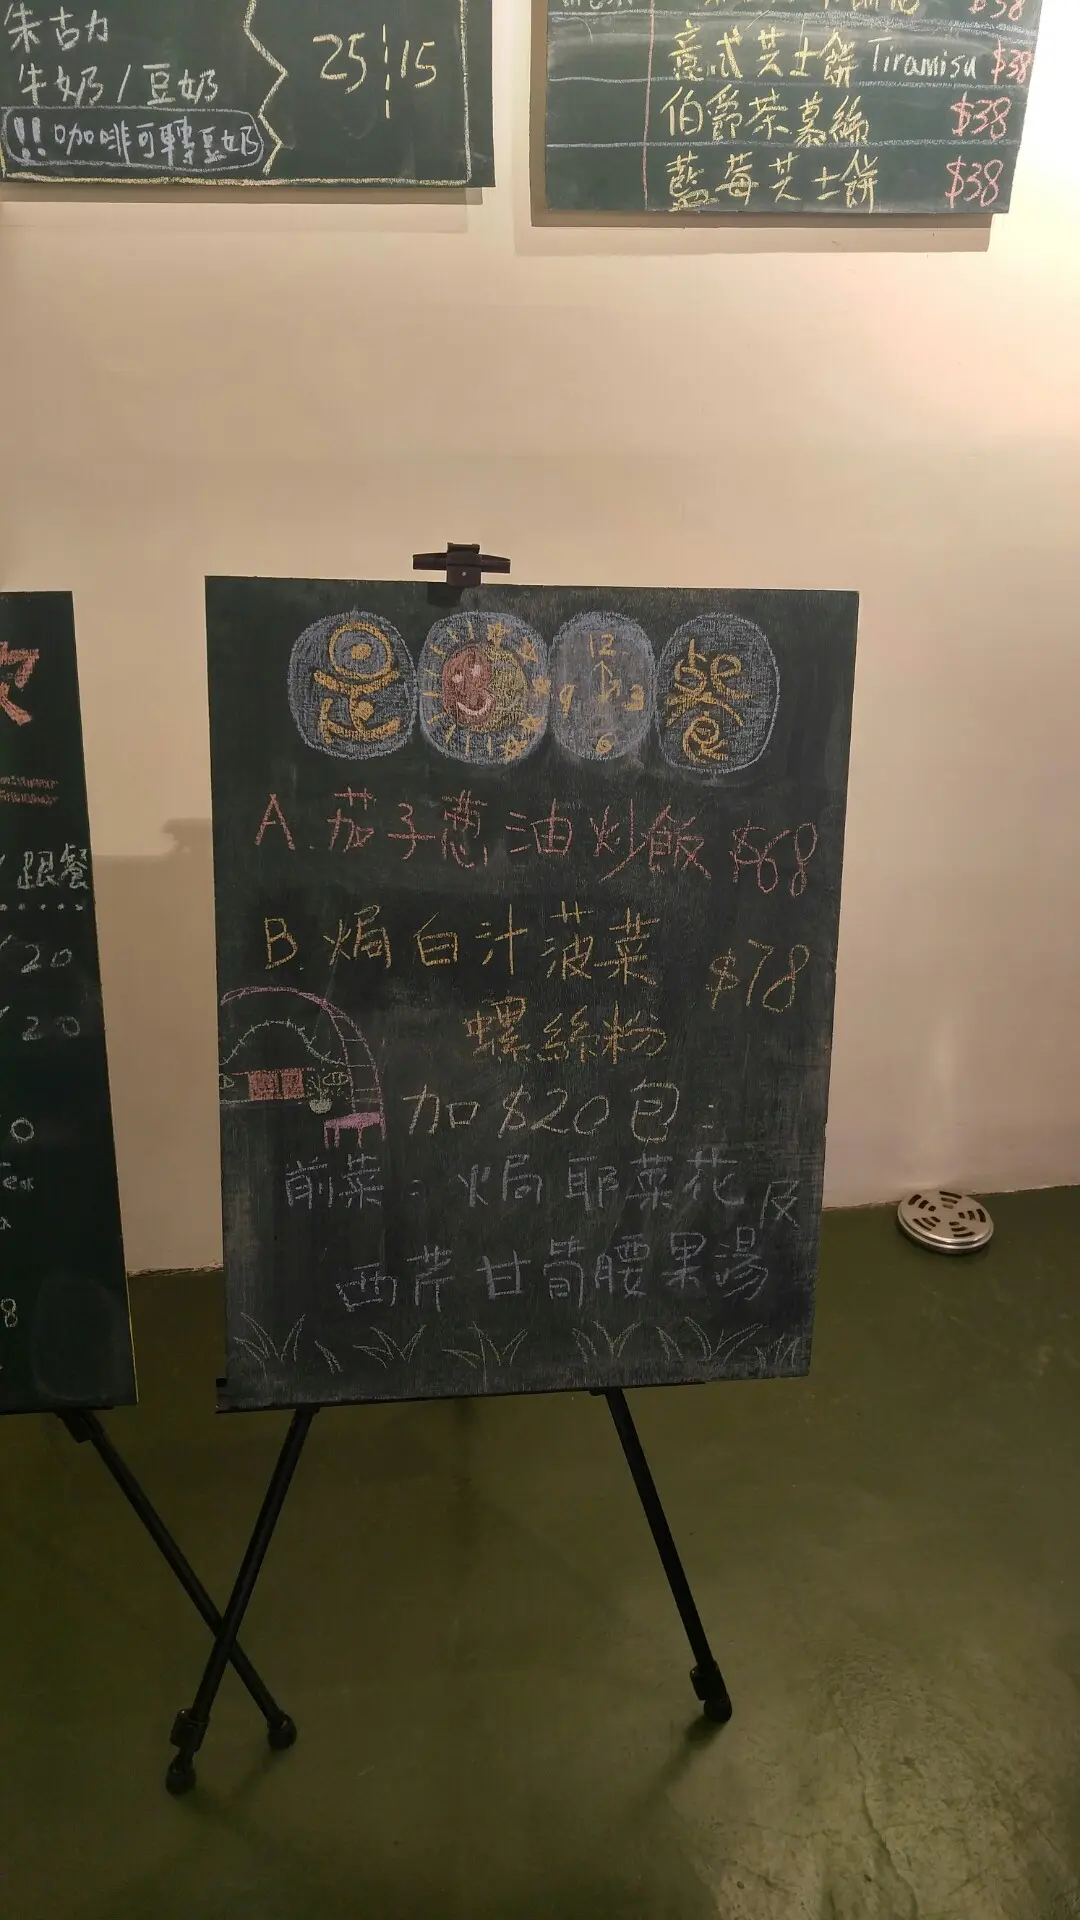 朱古力
牛奶/豆奶
25 15
!! 咖啡可轉豆奶
$38
意式芝士餅 Tiramisu $38
伯爵茶慕絲 $38
藍莓芝士餅 $38
12
9 3
6
餐
A. 茄子蔥油炒飯 $68
B. 焗白汁菠菜 $78
螺絲粉
加 $20 包:
前菜: 焗椰菜花及
西芹甘筍腰果湯
跟餐
/20
/20
0
8